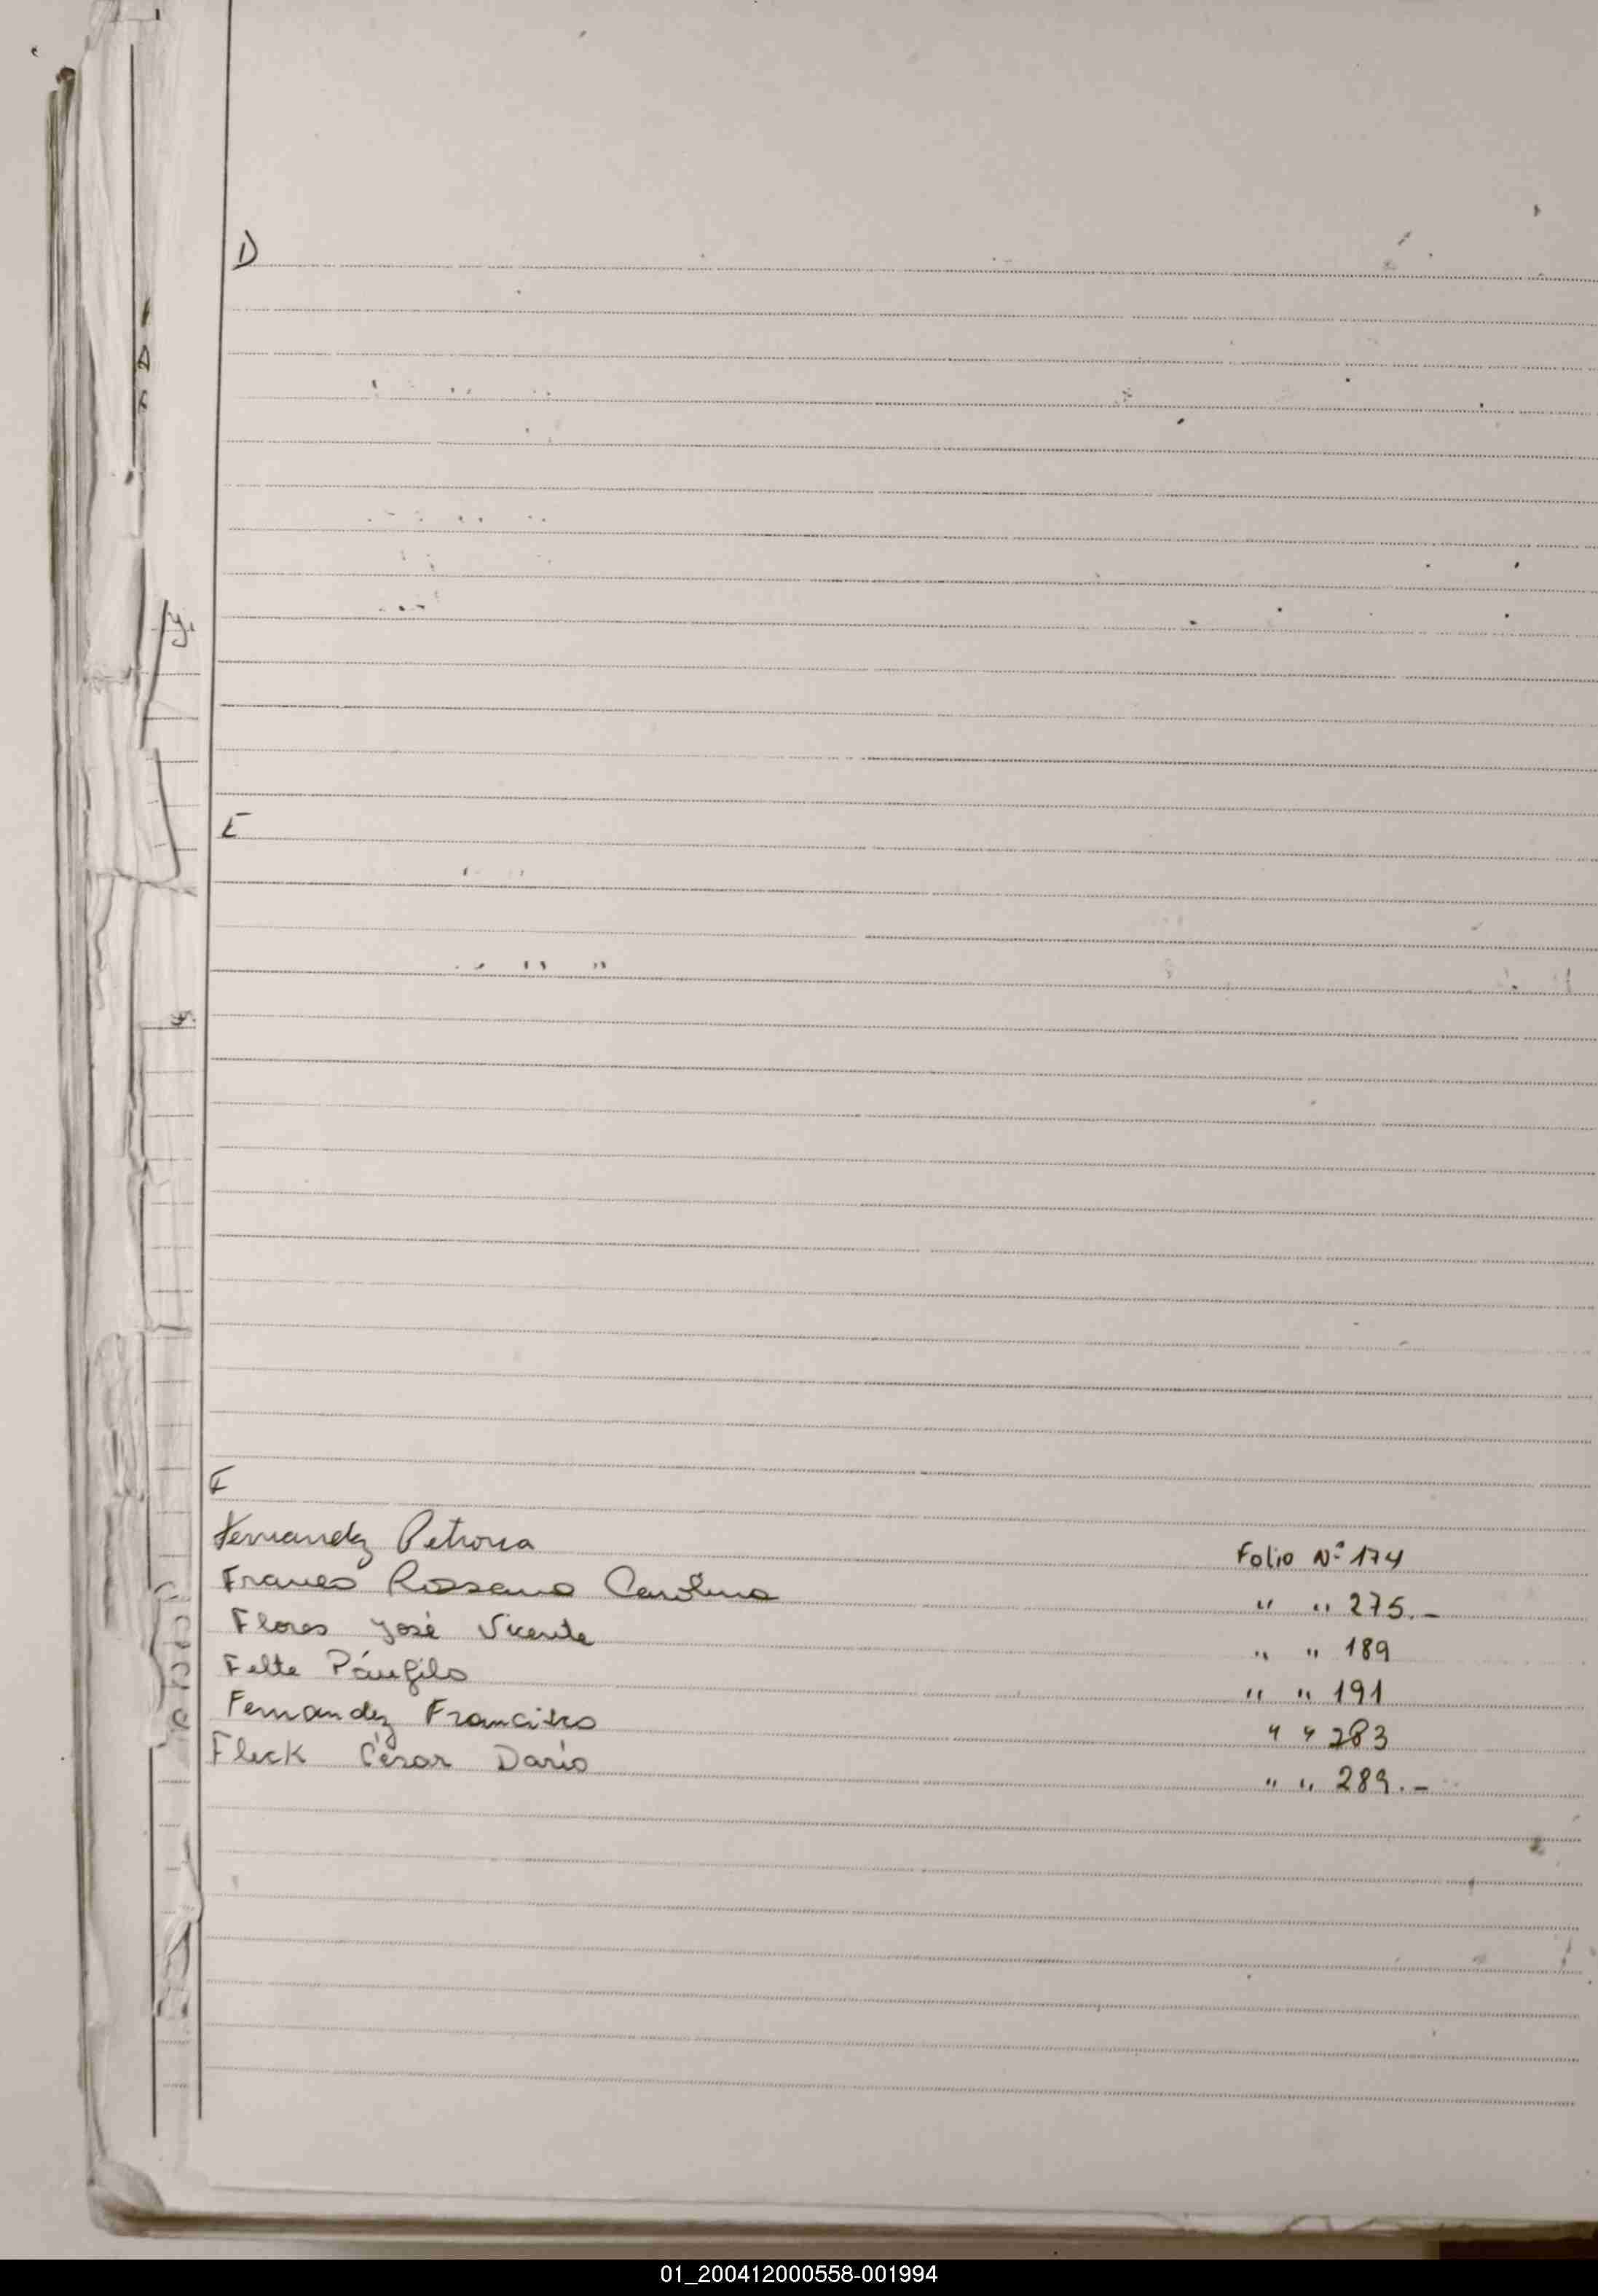 D
E
F
Fernandez Petrona Folio Nº 174
Franco Rossana Carolina " " 275.-
Flores José Vicente " " 189
Felte Pánfilo " " 191
Fernandez Francisco " " 283
Fleck César Darío " " 289.-
01_200412000558-001994